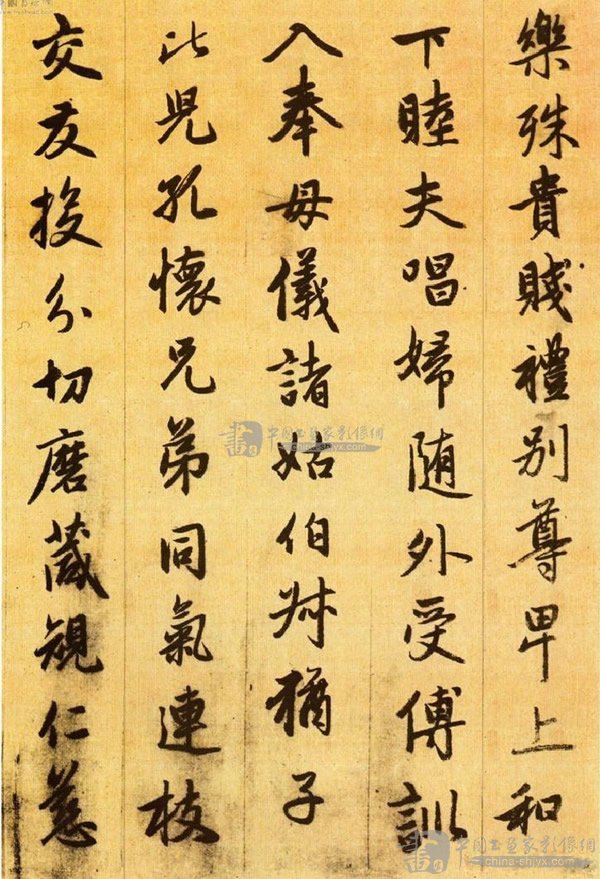 樂殊貴賤禮别尊卑上和
下睦夫唱婦随外受傅訓
入奉母儀諸姑伯叔猶子
比兒孔懷兄弟同氣連枝
交友投分切磨箴規仁慈
中国书画家影像網
www.china-shjyx.com
中国书画家影像網
www.china-shjyx.com